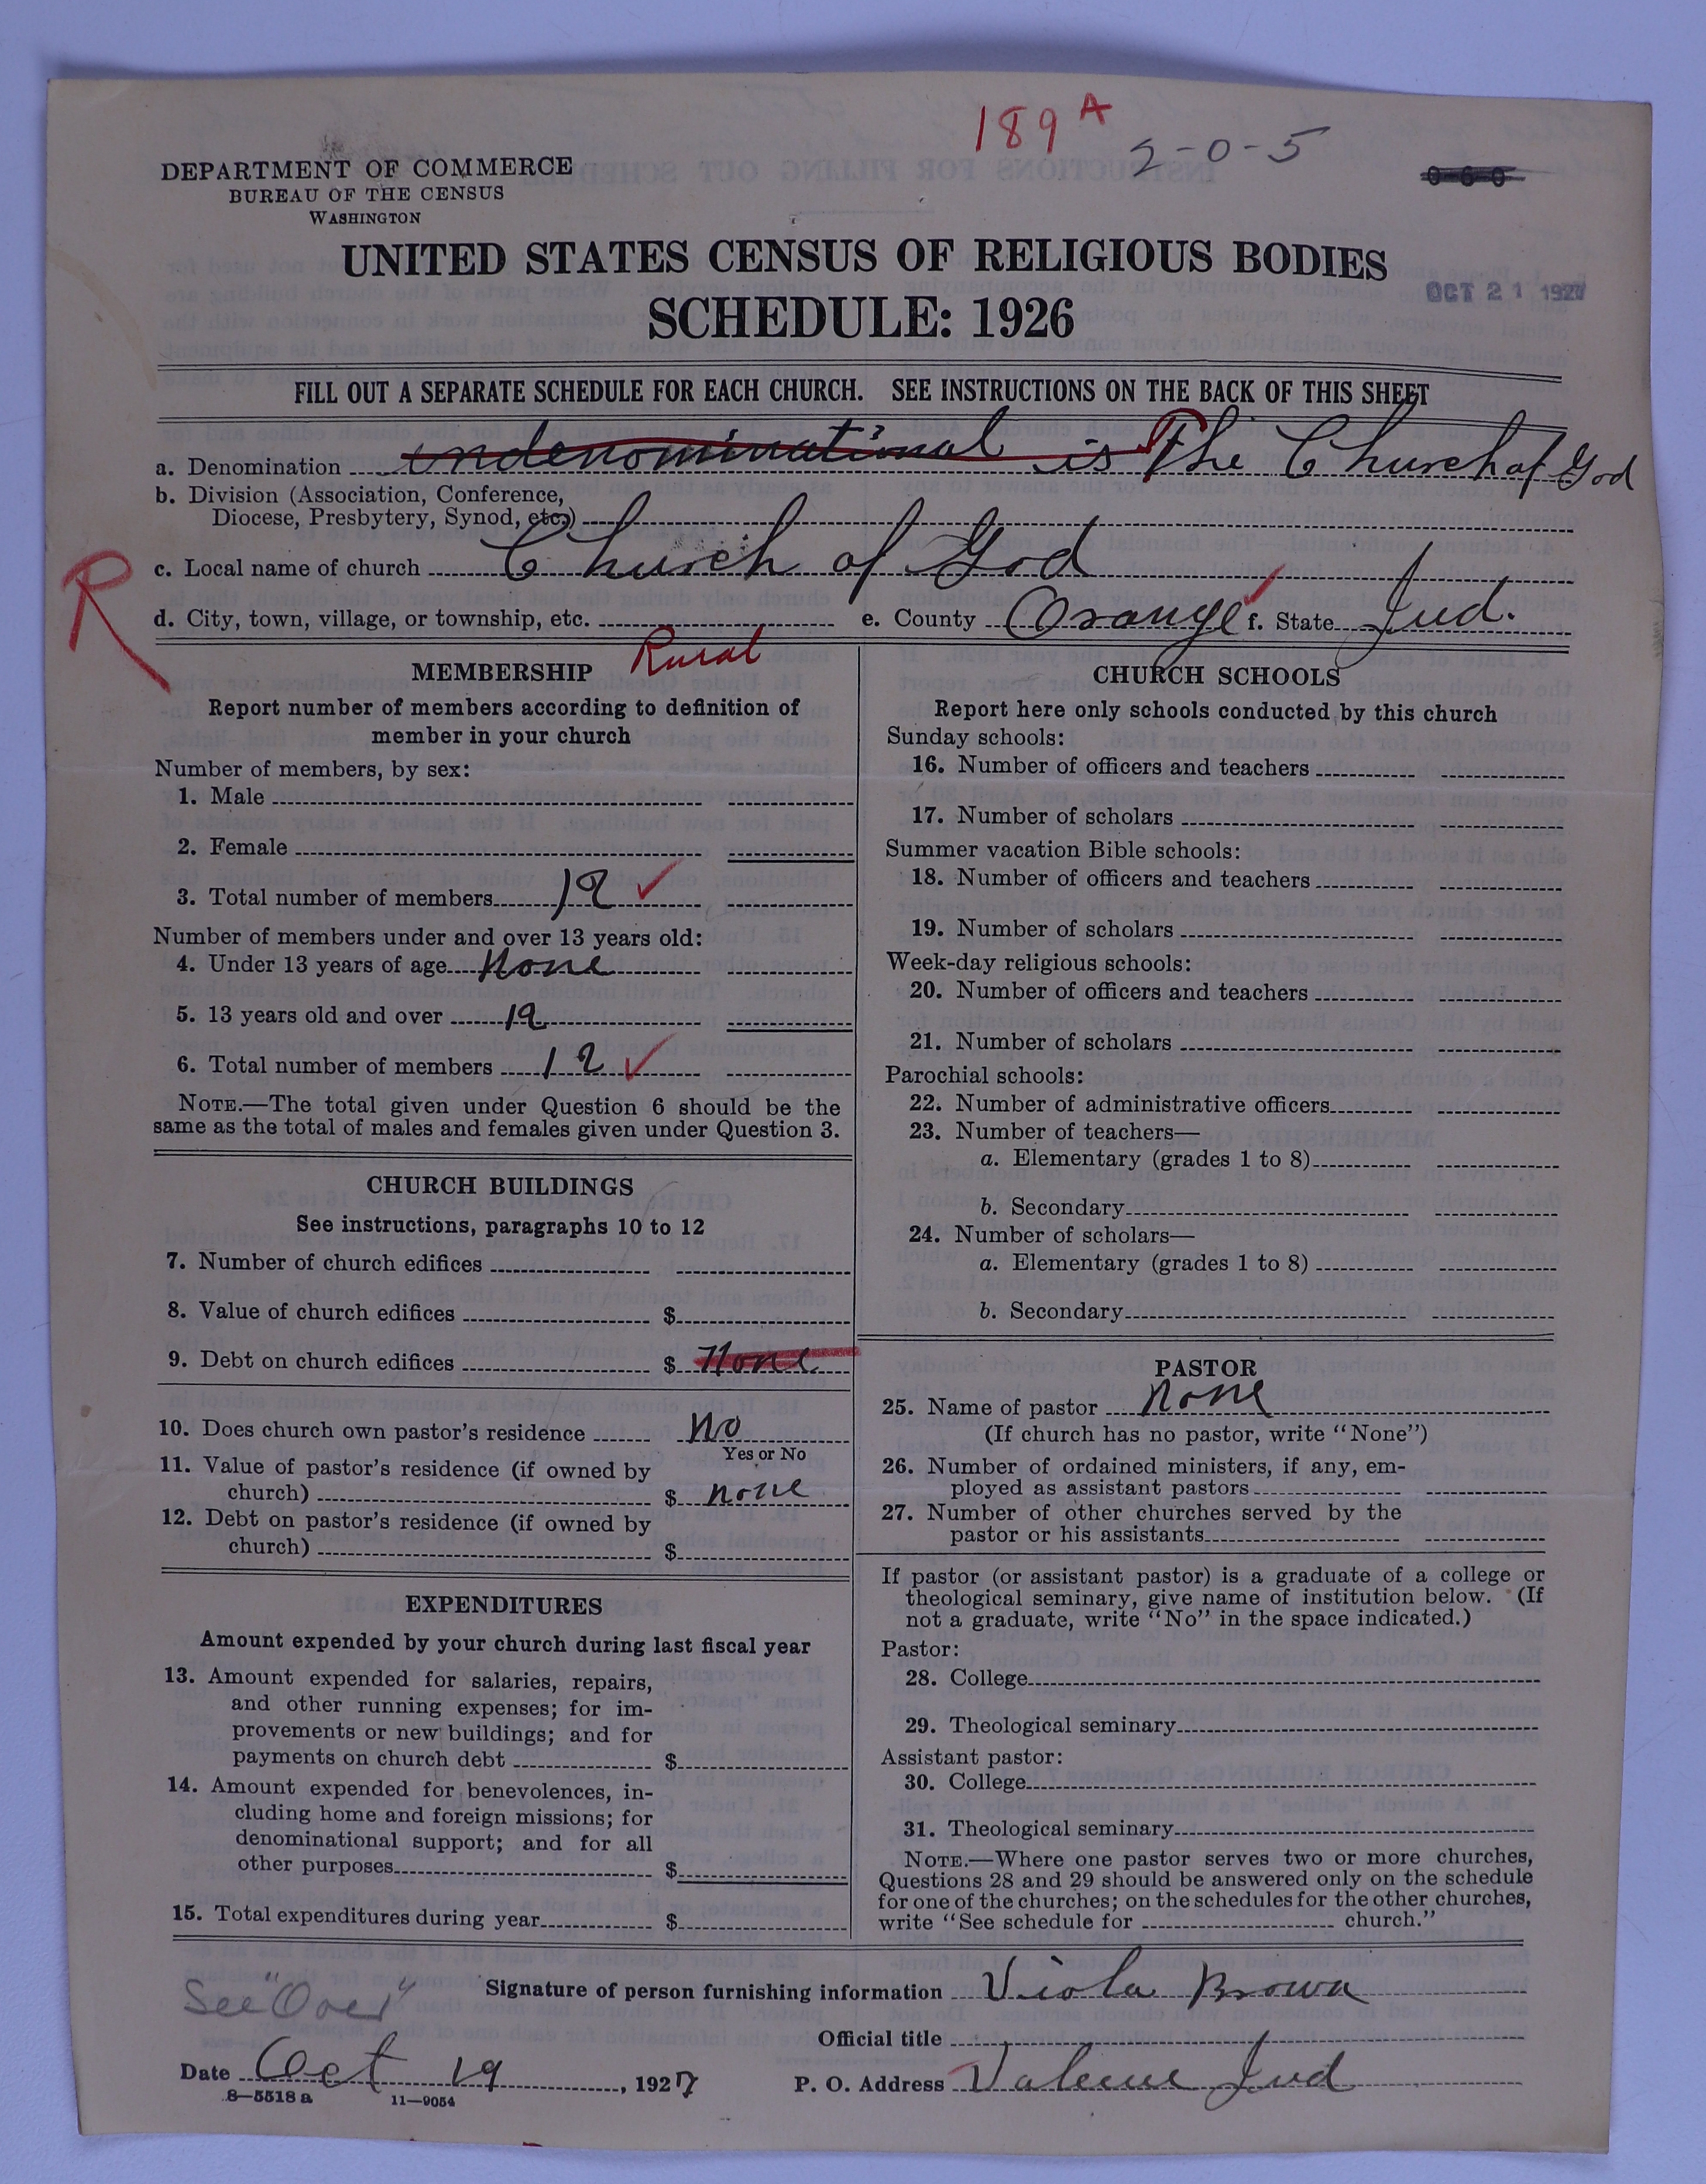 189 A
2-0-5
0-6-0
DEPARTMENT OF COMMERCE
BUREAU OF THE CENSUS
WASHINGTON
UNITED STATES CENSUS OF RELIGIOUS BODIES
SCHEDULE: 1926
OCT 21 1927
FILL OUT A SEPARATE SCHEDULE FOR EACH CHURCH. SEE INSTRUCTIONS ON THE BACK OF THIS SHEET
a. Denomination undenominational is The Church of God
b. Division (Association, Conference,
Diocese, Presbytery, Synod, etc.)
c. Local name of church Church of God
R
d. City, town, village, or township, etc. e. County Orange f. State Ind.
Rural
MEMBERSHIP
Report number of members according to definition of
member in your church
Number of members, by sex:
1. Male
2. Female
3. Total number of members 12
Number of members under and over 13 years old:
4. Under 13 years of age None
5. 13 years old and over 12
6. Total number of members 12
NOTE.—The total given under Question 6 should be the
same as the total of males and females given under Question 3.
CHURCH BUILDINGS
See instructions, paragraphs 10 to 12
7. Number of church edifices
8. Value of church edifices $
9. Debt on church edifices $ None
10. Does church own pastor's residence No
Yes or No
11. Value of pastor's residence (if owned by
church) $ none
12. Debt on pastor's residence (if owned by
church) $
EXPENDITURES
Amount expended by your church during last fiscal year
13. Amount expended for salaries, repairs,
and other running expenses; for im-
provements or new buildings; and for
payments on church debt $
14. Amount expended for benevolences, in-
cluding home and foreign missions; for
denominational support; and for all
other purposes $
15. Total expenditures during year $
CHURCH SCHOOLS
Report here only schools conducted by this church
Sunday schools:
16. Number of officers and teachers
17. Number of scholars
Summer vacation Bible schools:
18. Number of officers and teachers
19. Number of scholars
Week-day religious schools:
20. Number of officers and teachers
21. Number of scholars
Parochial schools:
22. Number of administrative officers
23. Number of teachers—
a. Elementary (grades 1 to 8)
b. Secondary
24. Number of scholars—
a. Elementary (grades 1 to 8)
b. Secondary
PASTOR
25. Name of pastor None
(If church has no pastor, write "None")
26. Number of ordained ministers, if any, em-
ployed as assistant pastors
27. Number of other churches served by the
pastor or his assistants
If pastor (or assistant pastor) is a graduate of a college or
theological seminary, give name of institution below. (If
not a graduate, write "No" in the space indicated.)
Pastor:
28. College
29. Theological seminary
Assistant pastor:
30. College
31. Theological seminary
NOTE.—Where one pastor serves two or more churches,
Questions 28 and 29 should be answered only on the schedule
for one of the churches; on the schedules for the other churches,
write "See schedule for church."
See "Over"
Signature of person furnishing information Viola Brown
Official title
Date Oct 19, 1927 P. O. Address Valeene Ind
8—5518 a 11—9054